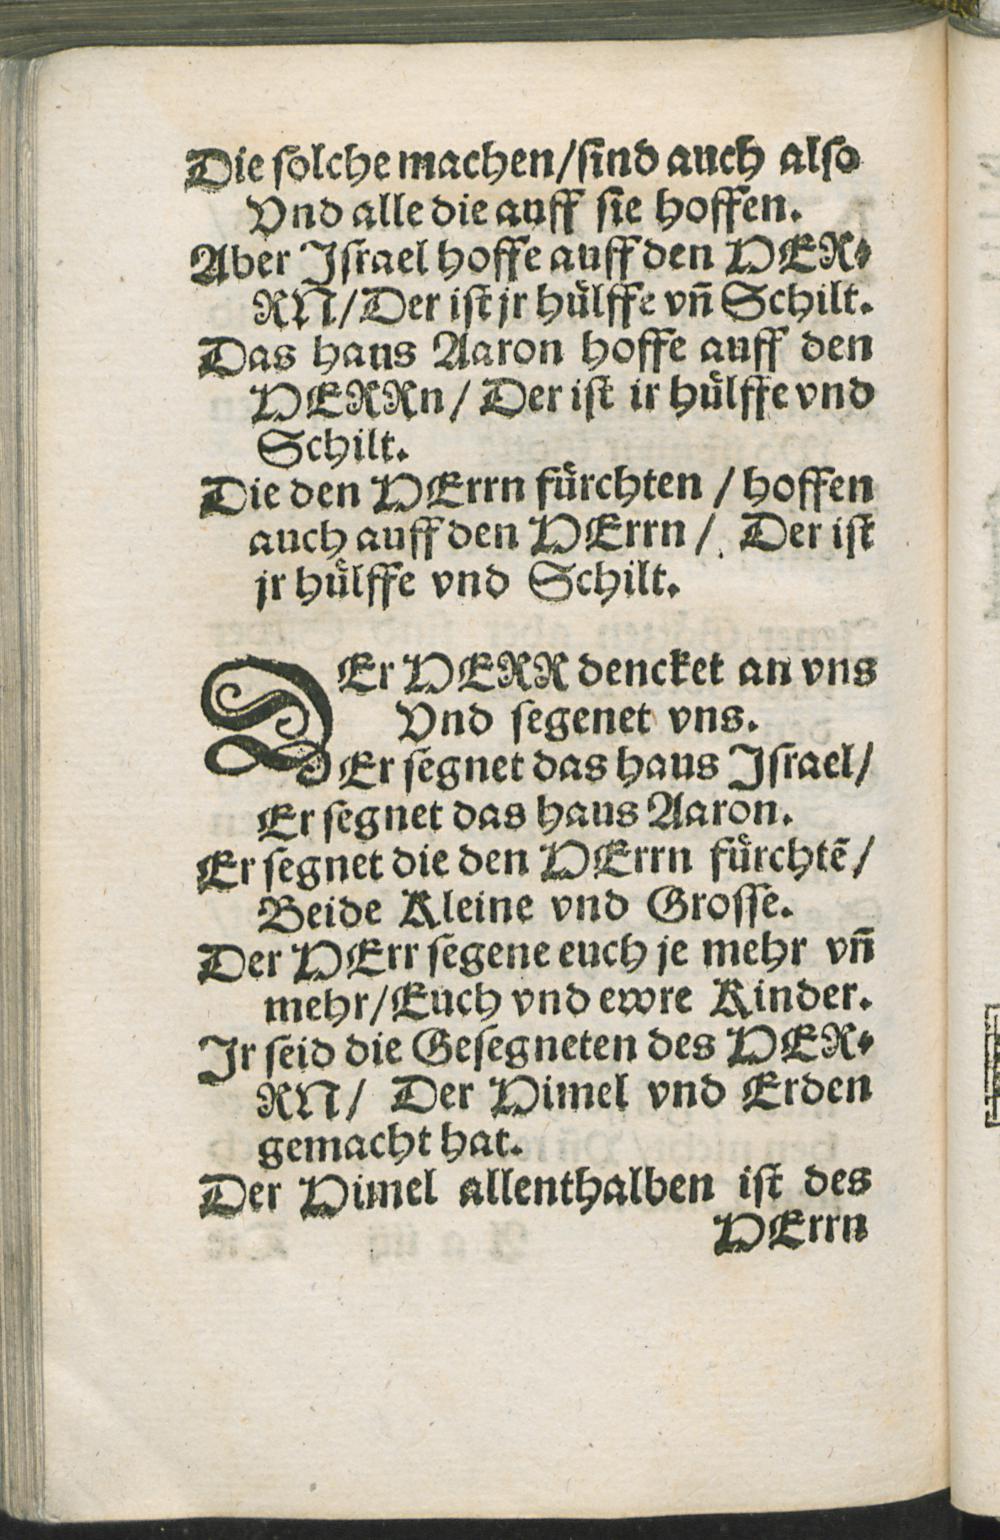 Die ſolche machen/ſind auch alſo
Vnd alle die auff ſie hoffen.
Aber Iſrael hoffe auff den HER⸗
RN/Der iſt jr huͤlffe vn̄ Schilt.
Das haus Aaron hoffe auff den
HERRn/ Der iſt ir huͤlffe vnd
Schilt.
Die den HErrn fuͤrchten / hoffen
auch auff den HErrn / Der iſt
jr huͤlffe vnd Schilt.
DEr HERR dencket an vns
Vnd ſegenet vns.
Er ſegnet das haus Iſrael/
Er ſegnet das haus Aaron.
Er ſegnet die den HErrn fuͤrchtē/
Beide Kleine vnd Groſſe.
Der HErr ſegene euch je mehr vn̄
mehr/Euch vnd ewre Kinder.
Ir ſeid die Geſegneten des HER⸗
RN/ Der Himel vnd Erden
gemacht hat.
Der Himel allenthalben iſt des
HErrn